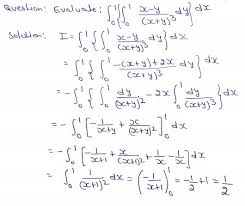 Question: Evaluate: ∫₀¹{∫₀¹ (x-y)/(x+y)³ dy}dx
Solution: I = ∫₀¹{∫₀¹ (x-y)/(x+y)³ dy}dx
= ∫₀¹{∫₀¹ (-(x+y)+2x)/(x+y)³ dy}dx
= -∫₀¹{∫₀¹ dy/(x+y)² - 2x∫₀¹ dy/(x+y)³}dx
= -∫₀¹[-1/(x+y) + x/(x+y)²]₀¹ dx
= -∫₀¹[-1/(x+1) + x/(x+1)² + 1/x - 1/x]dx
= ∫₀¹ 1/(x+1)² dx = (-1/(x+1))₀¹ = -1/2+1 = 1/2